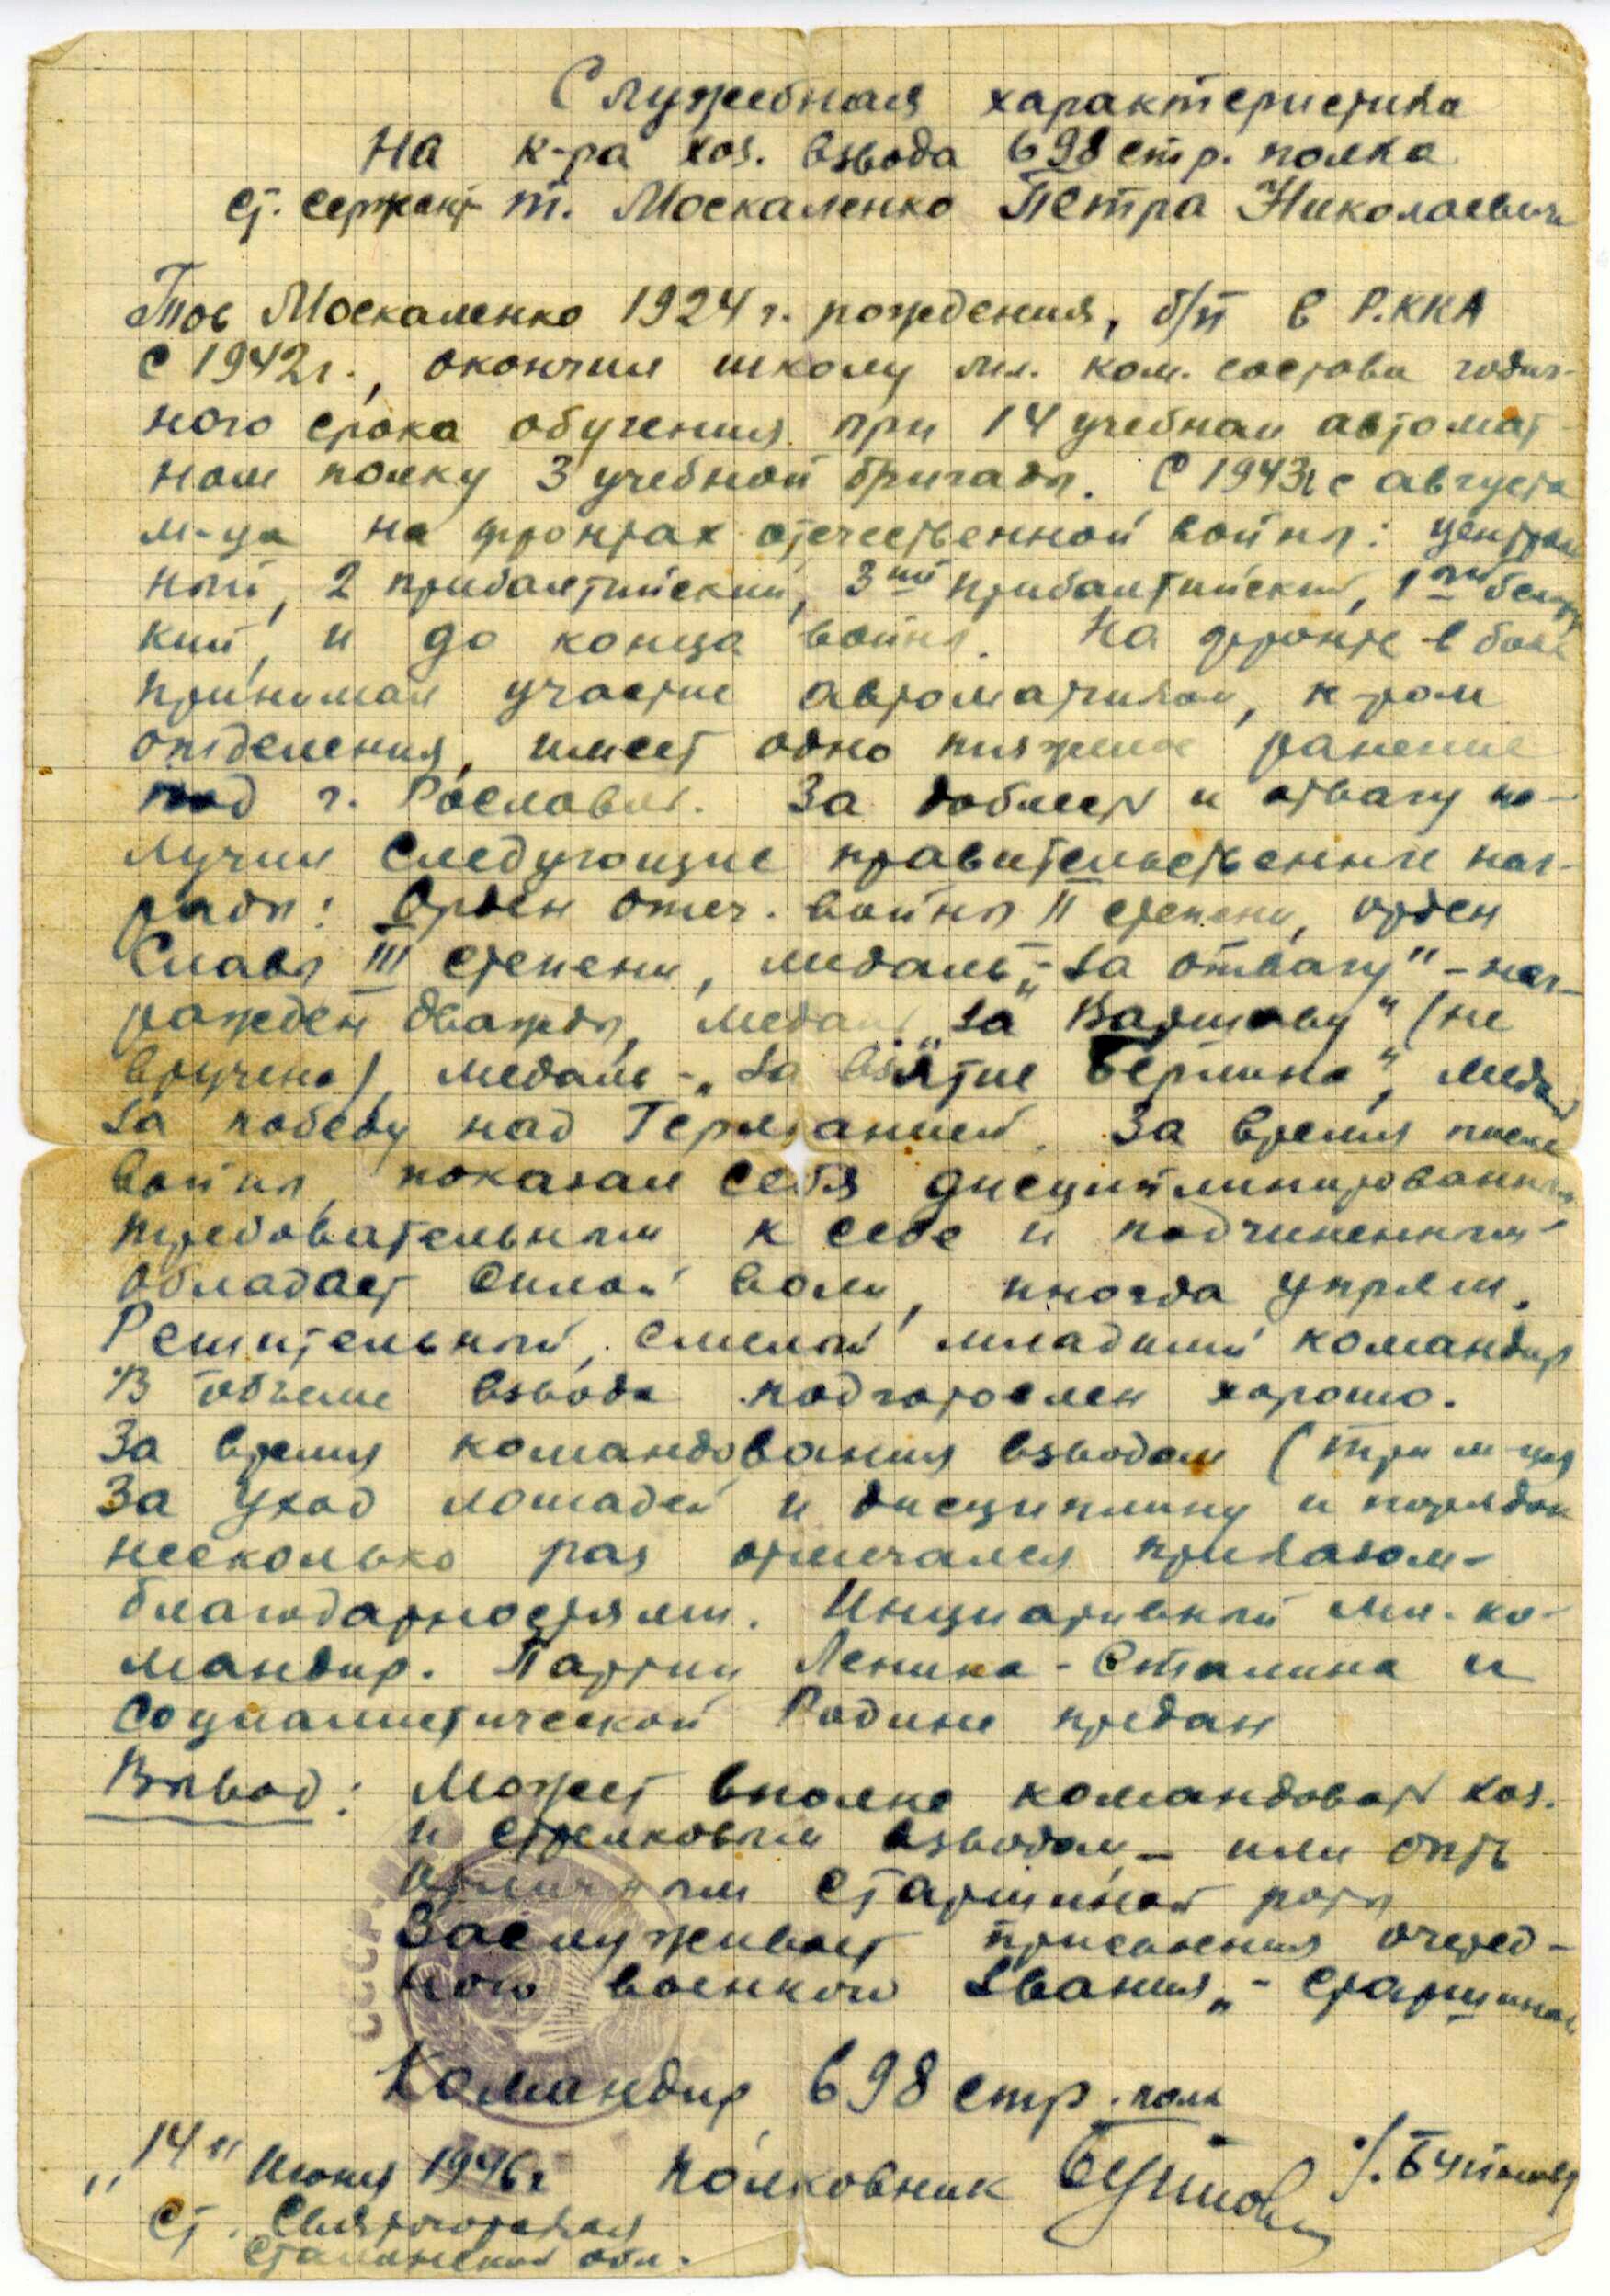 Служебная характеристика
На к-ра хоз. взвода 698 стр. полка
ст. сержант т. Москаленко Петра Николаевича
Тов Москаленко 1924 г. рождения, б/п в Р.ККА
с 1942г., окончил школу мл. ком. состава годич-
ного срока обучения при 14 учебном автомат-
ном полку 3 учебной бригады. С 1943г с августа
м-ца на фронтах отечественной войны: централь
ный, 2 прибалтийский, 3ий прибалтийский, 1ый белорус
кий, и до конца войны. На фронте в боях
принимал участие автоматчиком, к-ром
отделения, имеет одно тяжелое ранение
под г. Рославль. За доблесть и отвагу по-
лучил следующие правительственные наг-
рады: Орден Отеч. войны II степени, орден
Славы III степени, медаль „За отвагу" – наг-
ражден дважды, медаль „За Варшаву" (не
вручена), медаль – „За взятие Берлина", медаль
за победу над Германией. За время после
войны, показал себя дисциплинированным
требовательным к себе и подчиненным
обладает силой воли, иногда упрям.
Решительный, смелый младший командир
В объеме взвода подготовлен хорошо.
За время командования взводом (три м-ца
За уход лошадей и дисциплину и порядок
несколько раз отмечался приказом-
благодарностями. Инциативный мл. ко-
мандир. Партии Ленина - Сталина и
социалистической Родине предан
Вывод: Может вполне командовать хоз.
и стрелковым взводом – или быть
отличным старшиной роты
Заслуживает присвоения очеред-
ного военного звания „- старшина
СССР
Командир 698 стр. полк
„14" Июня 1946г Полковник Бутинов /. Бутинов/
ст. Святогорская
Сталинской обл.